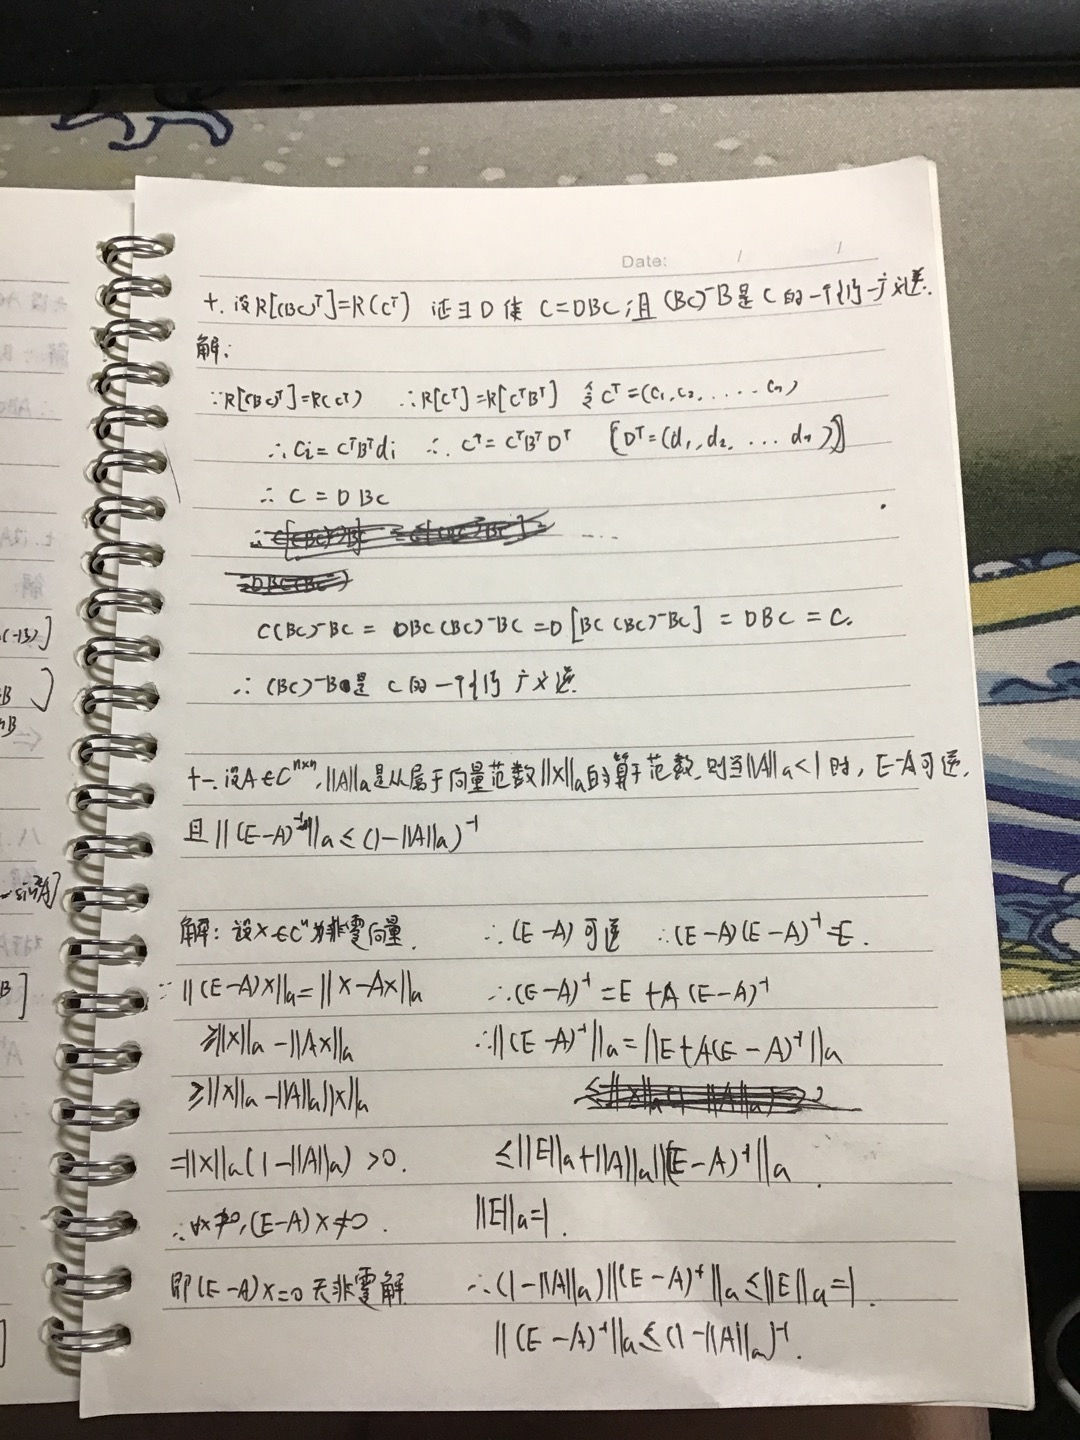 Date: / /
十. 设R[(BC)ᵀ]=R(Cᵀ) 证∃D使 C=DBC,且(BC)⁻B是C的一个{1}-广义逆.
解:
∵R[(BC)ᵀ]=R(Cᵀ) ∴R[Cᵀ]=R[CᵀBᵀ] 令Cᵀ=(C₁,C₂,....Cₙ)
∴Ci=CᵀBᵀdi ∴Cᵀ=CᵀBᵀDᵀ [Dᵀ=(d₁,d₂,...dₙ)]
∴ C = DBC
C(BC)⁻BC = DBC(BC)⁻BC =D[BC(BC)⁻BC] = DBC = C.
∴(BC)⁻B是 C的一个{1}广义逆.
十一.设A∈Cⁿˣⁿ,||A||a是从属于向量范数||x||a的算子范数,则当||A||a<1时,E-A可逆,
且||(E-A)⁻¹||a≤(1-||A||a)⁻¹
解:设x∈Cⁿ为非零向量.
∵||(E-A)x||a=||x-Ax||a
≥||x||a-||Ax||a
≥||x||a-||A||a||x||a
=||x||a(1-||A||a)>0.
∴∀x≠0,(E-A)x≠0.
即(E-A)x=0无非零解
∴(E-A)可逆 ∴(E-A)(E-A)⁻¹=E.
∴(E-A)⁻¹=E+A(E-A)⁻¹
∴||(E-A)⁻¹||a=||E+A(E-A)⁻¹||a
≤||E||a+||A||a||(E-A)⁻¹||a.
||E||a=1.
∴(1-||A||a)||(E-A)⁻¹||a≤||E||a=1.
||(E-A)⁻¹||a≤(1-||A||a)⁻¹.